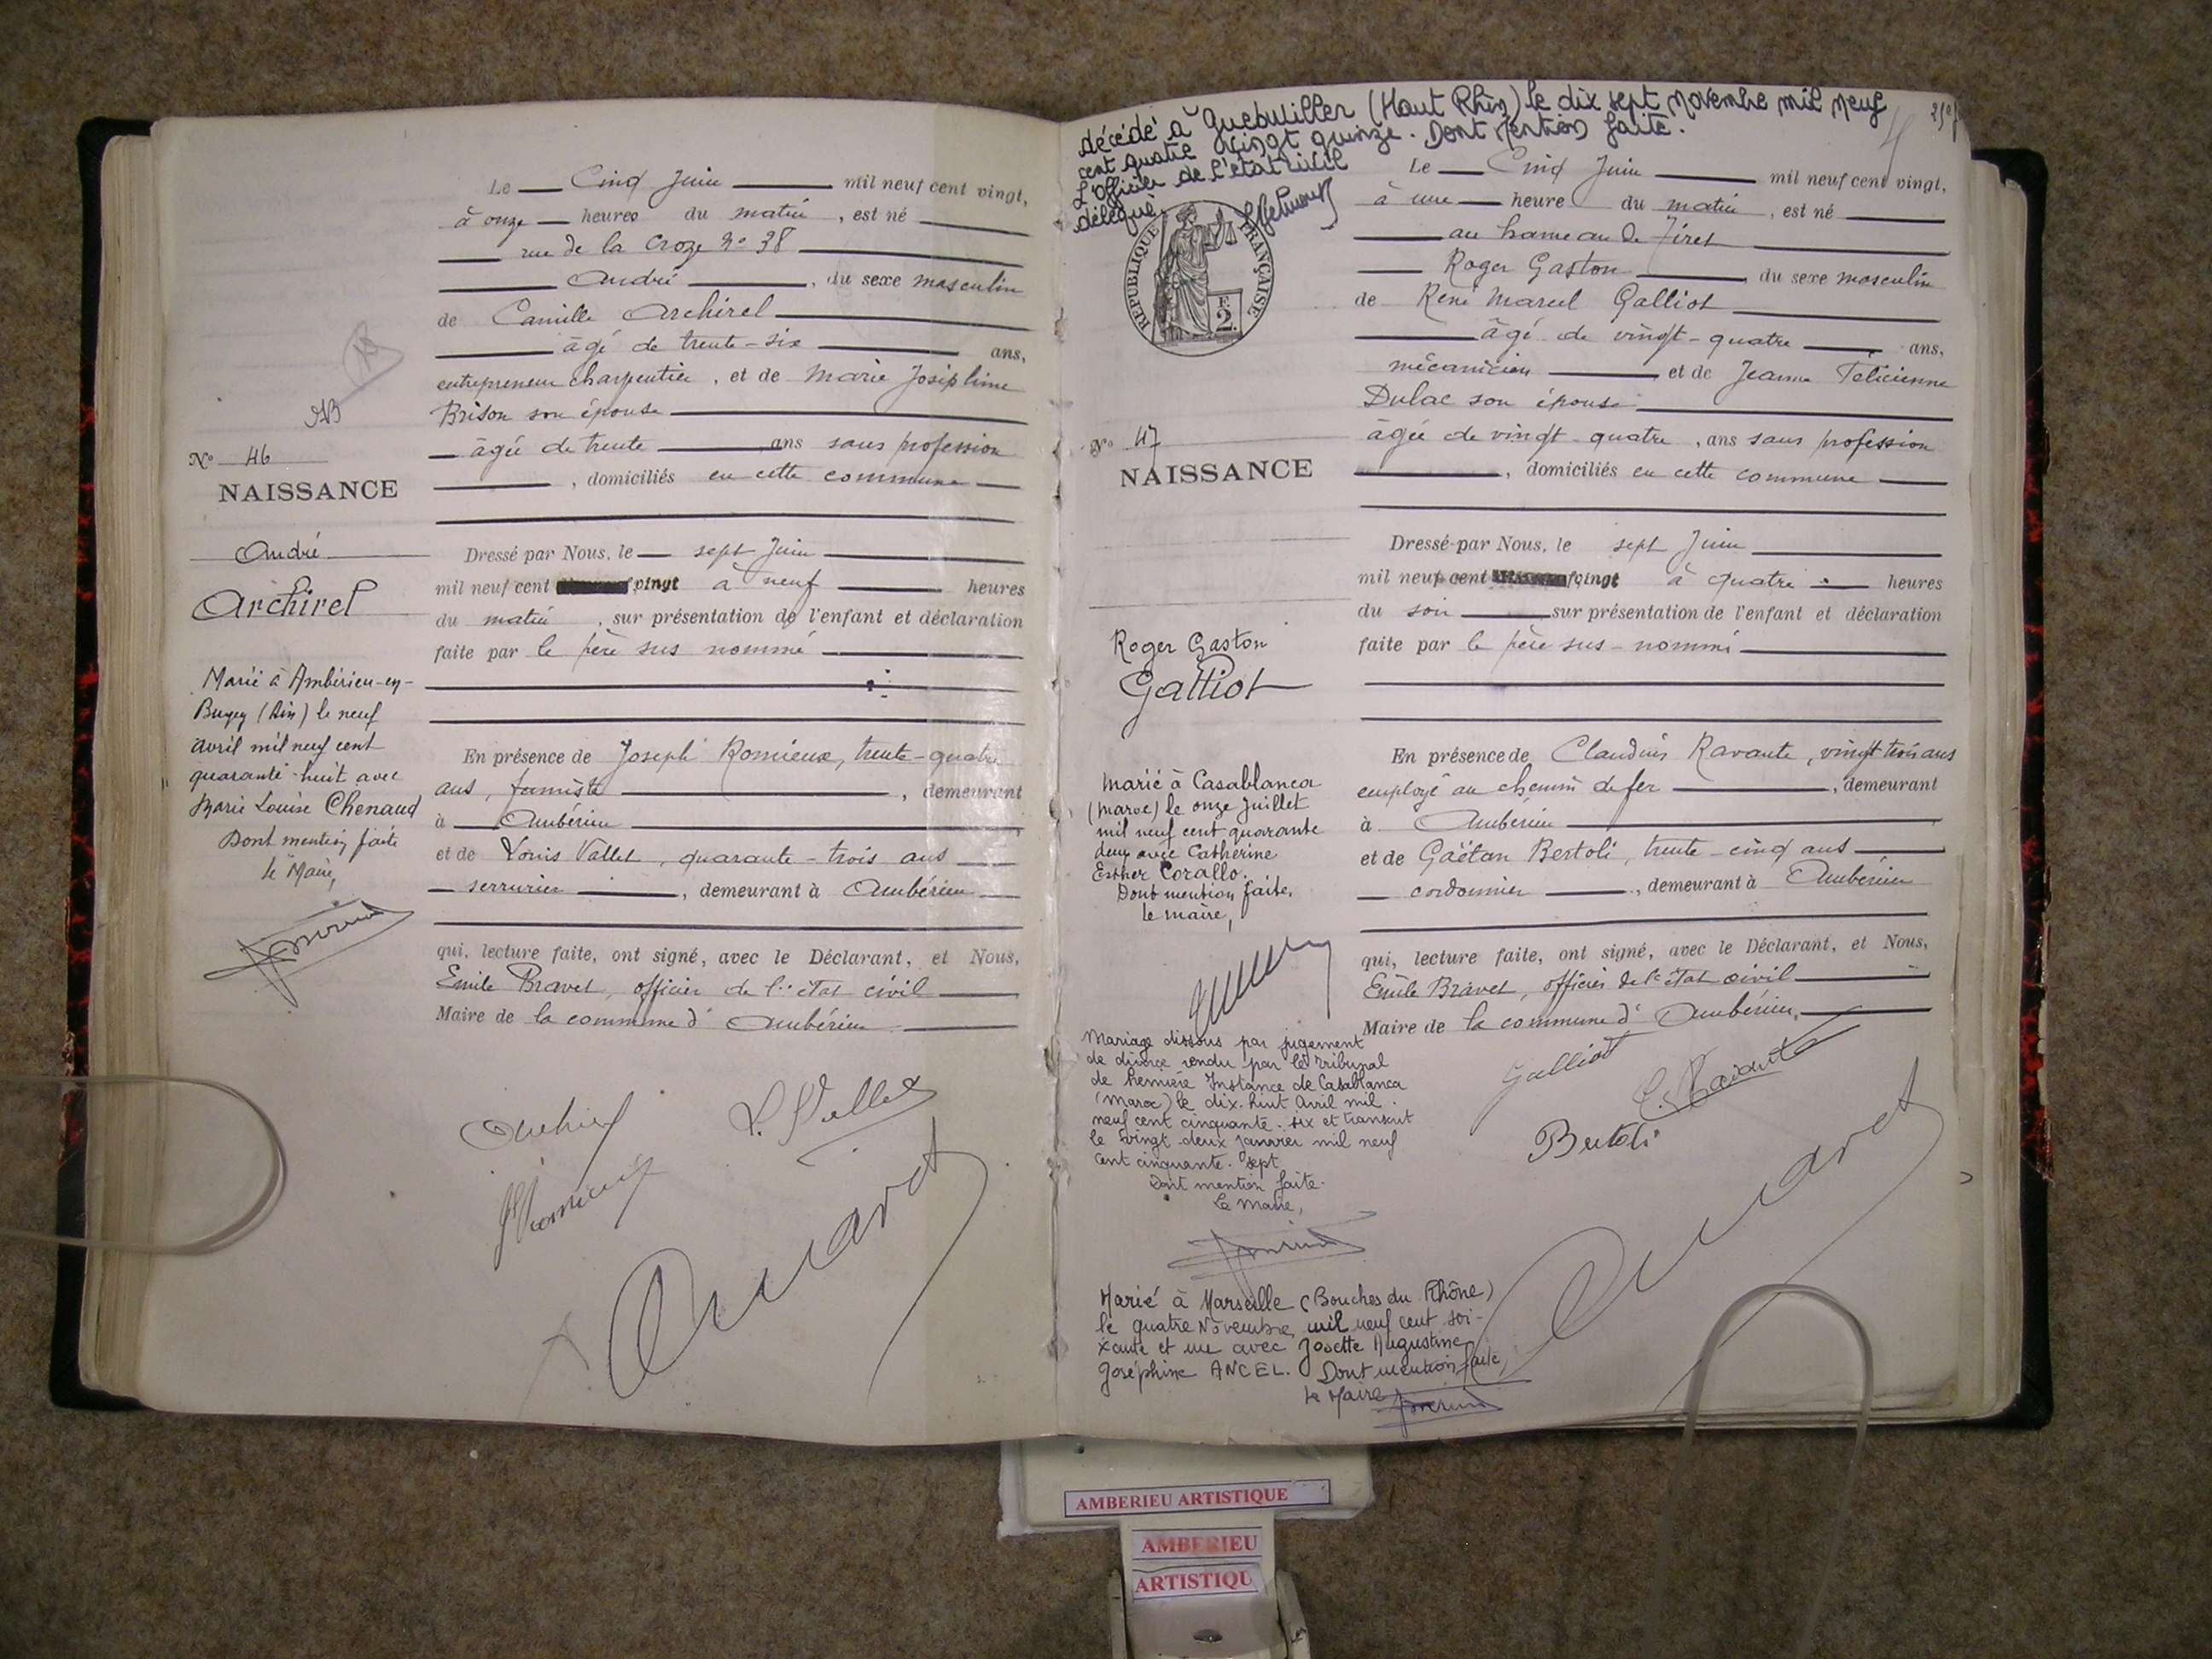 Le Cinq Juin mil neuf cent vingt,
à onze heures du matin, est né
rue de la Croze No 38
André, du sexe masculin
de Camille Archirel
âgé de trente-six ans,
entrepreneur charpentier, et de Marie Joséphine
Brison son épouse
âgée de trente ans sans profession
, domiciliés en cette commune
No 46
NAISSANCE
André
Archirel
Dressé par Nous, le sept Juin
mil neuf cent vingt à neuf heures
du matin, sur présentation de l'enfant et déclaration
faite par le père sus nommé
Marié à Ambérieu-en-
Bugey (Ain) le neuf
avril mil neuf cent
quarante-huit avec
Marie Louise Chenaud
Dont mention faite
le Maire,
En présence de Joseph Romieux, trente-quatre
ans, fumiste, demeurant
à Ambérieu
et de Louis Vallet, quarante-trois ans
serrurier, demeurant à Ambérieu
qui, lecture faite, ont signé, avec le Déclarant, et Nous,
Emile Bravet, officier de l'état civil
Maire de la commune d'Ambérieu
L. Vallet
décédé à Guebwiller (Haut Rhin) le dix sept Novembre mil neuf
cent quatre vingt quinze. Dont Mention faite.
L'Officier de l'état civil
délégué
REPUBLIQUE FRANÇAISE
F.
2.
Le Cinq Juin mil neuf cent vingt,
à une heure du matin, est né
au hameau de Tiret
Roger Gaston du sexe masculin
de René Marcel Galliot
âgé de vingt-quatre ans,
mécanicien et de Jeanne Félicienne
Dulac son épouse
âgée de vingt-quatre, ans sans profession
, domiciliés en cette commune
No 47
NAISSANCE
Roger Gaston
Galliot
Dressé par Nous, le sept Juin
mil neuf cent vingt à quatre heures
du soir sur présentation de l'enfant et déclaration
faite par le père sus-nommé
marié à Casablanca
(Maroc) le onze Juillet
mil neuf cent quarante
deux avec Catherine
Esther Corallo.
Dont mention faite.
le maire,
En présence de Claudius Ravante, vingt trois ans
employé au chemin de fer, demeurant
à Ambérieu
et de Gaëtan Bertoli, trente-cinq ans
cordonnier, demeurant à Ambérieu
qui, lecture faite, ont signé, avec le Déclarant, et Nous,
Emile Bravet, officier de l'état civil
Maire de la commune d'Ambérieu.
Galliot
Bertoli
Mariage dissous par jugement
de divorce rendu par le Tribunal
de Première Instance de Casablanca
(Maroc) le dix-huit Avril mil
neuf cent cinquante-six et transcrit
le vingt-deux janvier mil neuf
cent cinquante-sept
Dont mention faite.
Le Maire,
Marié à Marseille (Bouches du Rhône)
le quatre Novembre mil neuf cent soi-
xante et un avec Josette Augustine
Joséphine ANCEL. Dont mention faite,
le Maire
AMBERIEU ARTISTIQUE
AMBERIEU
ARTISTIQU